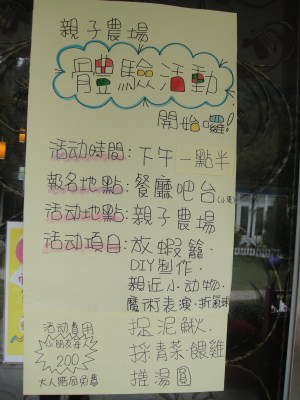 親子農場
體驗活動
開始囉!
活动時間:下午一點半
報名地點:餐廳吧台
活动地點:親子農場
活动項目:放蝦籠.
DIY制作.
親近小动物.
魔術表演.折氣球
捉泥鰍.
採青菜餵雞
搓湯圓
活动費用
小朋友每
200
大人陪同免費